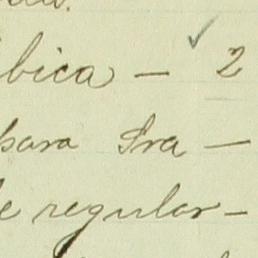 bica — 2
para Sra —
e regular-